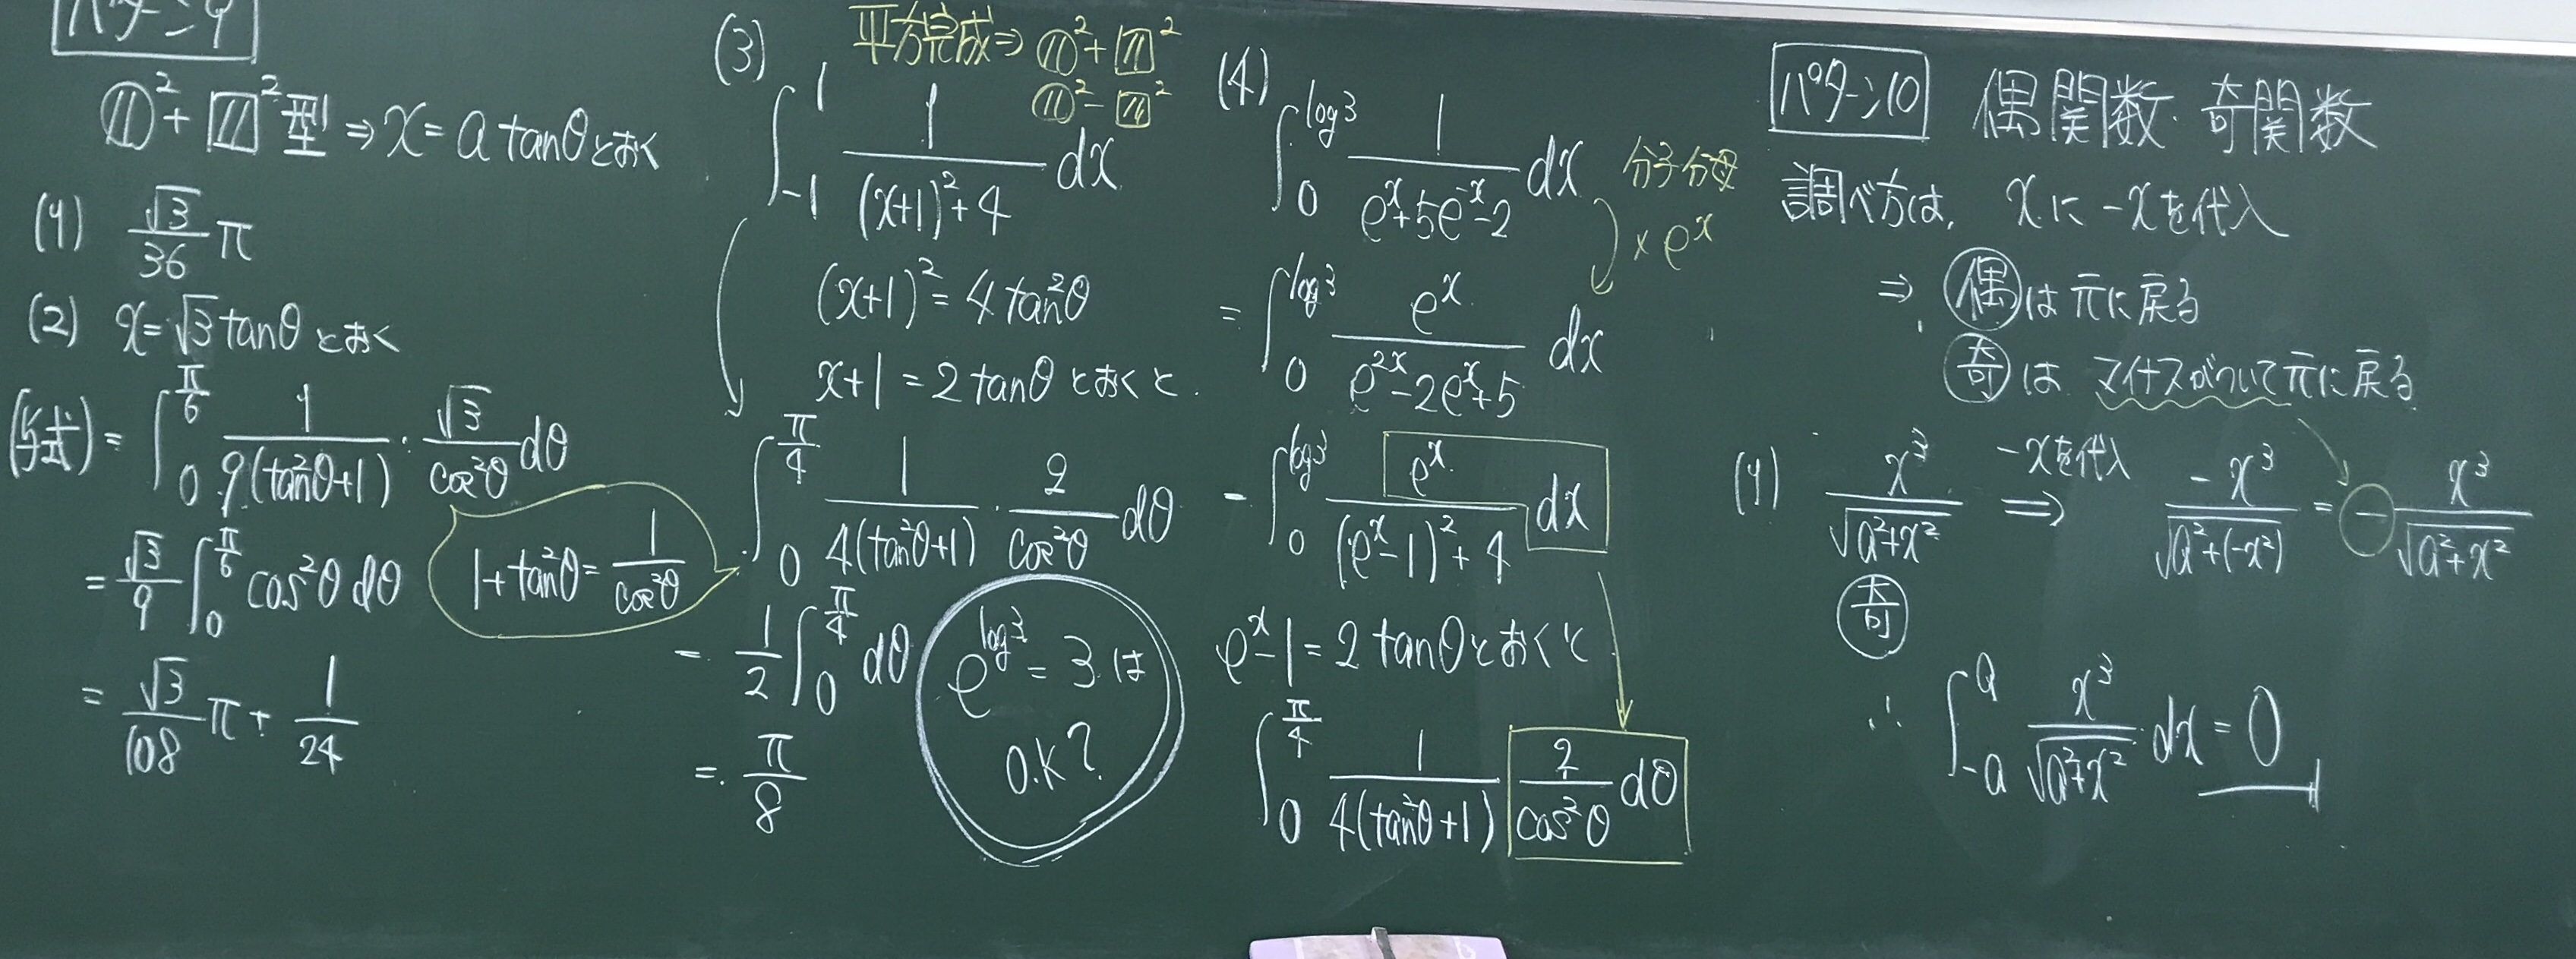 パターン9
○²+□²型⇒x=a tanθとおく
(1) √3/36 π
(2) x=√3tanθとおく
(与式)=∫₀^{π/6} 1/9(tan²θ+1)・√3/cos²θ dθ
=√3/9∫₀^{π/6}cos²θdθ
1+tan²θ=1/cos²θ
=√3/108 π+1/24
(3) 平方完成⇒○²+□²
○²-□²
∫₋₁^1 1/((x+1)²+4) dx
(x+1)²=4tan²θ
x+1=2tanθとおくと.
∫₀^{π/4} 1/4(tan²θ+1)・2/cos²θ dθ
=1/2∫₀^{π/4}dθ
=π/8
e^{log3}=3は
O.K?
(4) ∫₀^{log3} 1/(e^x+5e^{-x}-2) dx
分子分母
×e^x
=∫₀^{log3} e^x/(e^{2x}-2e^x+5) dx
=∫₀^{log3} e^x/((e^x-1)²+4) dx
e^x-1=2tanθとおくと
∫₀^{π/4} 1/4(tan²θ+1) 2/cos²θ dθ
パターン10 偶関数・奇関数
調べ方は, xに-xを代入
⇒ 偶は元に戻る
奇は マイナスがついて元に戻る
(1) x³/√(a²+x²) -xを代入 ⇒ -x³/√(a²+(-x²)) = - x³/√(a²+x²)
奇
∴ ∫₋ₐ^a x³/√(a²+x²) dx=0